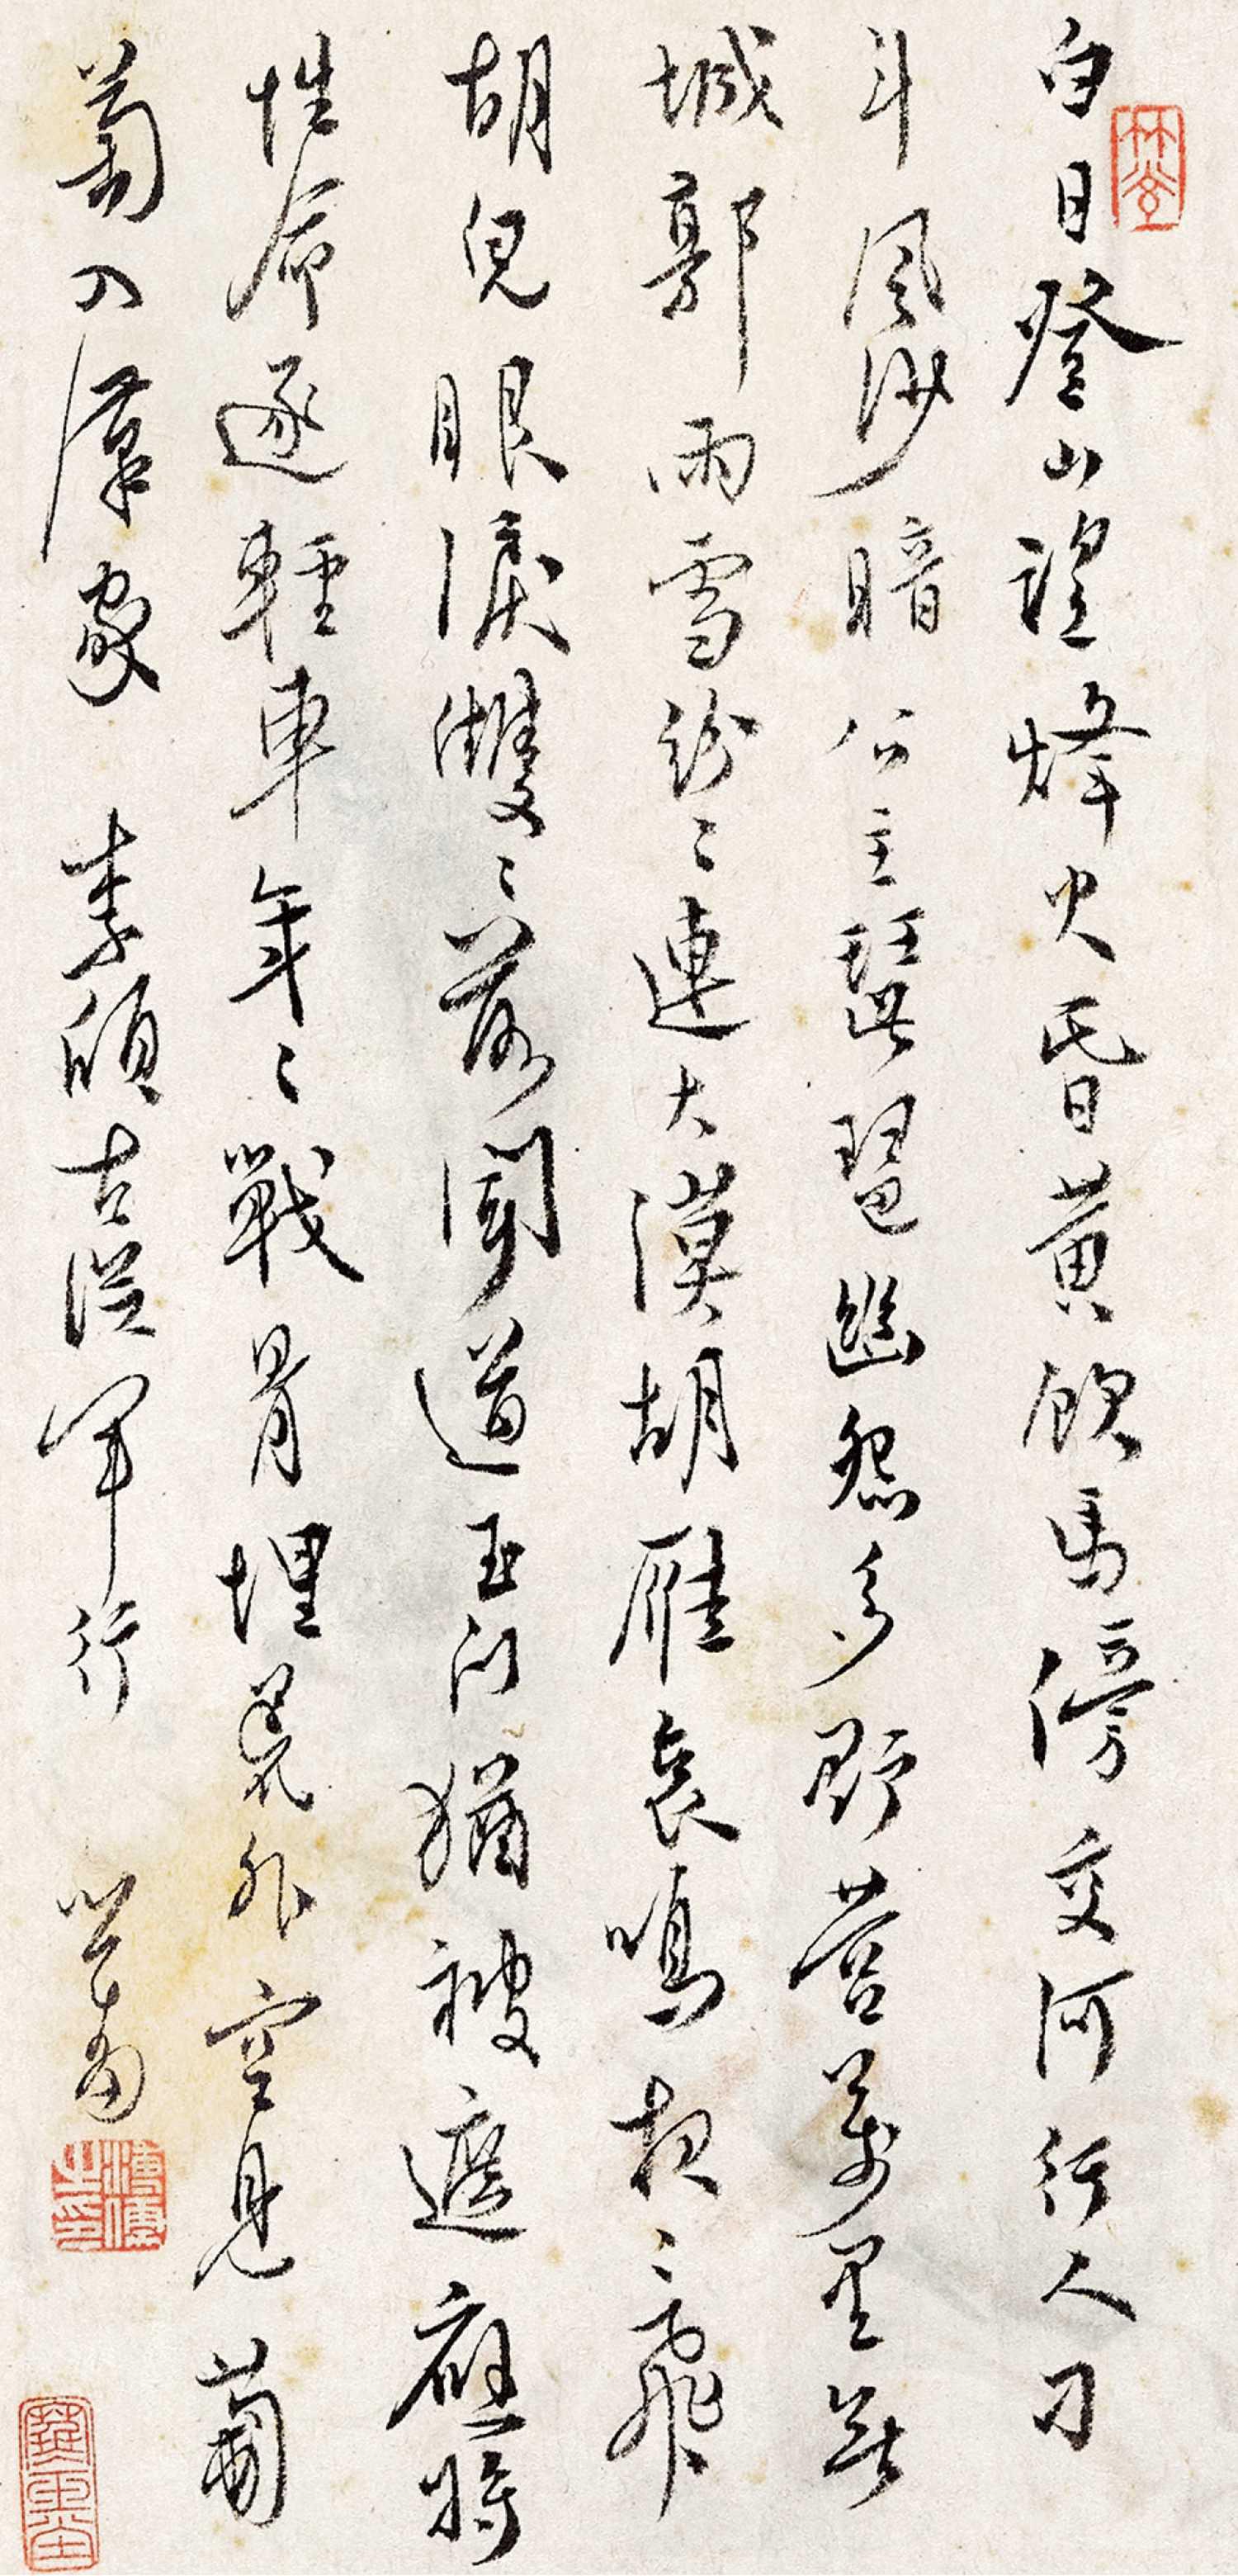 白日登山望烽火昏黃飲馬傍交河行人刁
斗風沙暗公主琵琶幽怨多野營萬里無
城郭雨雪紛〻連大漠胡雁哀鳴夜〻飛
胡兒眼淚雙〻落聞道玉門猶被遮應將
性命逐輕車年〻戰骨埋荒外空見葡
萄入漢家 李頎古從軍行 心畬
溥儒之印